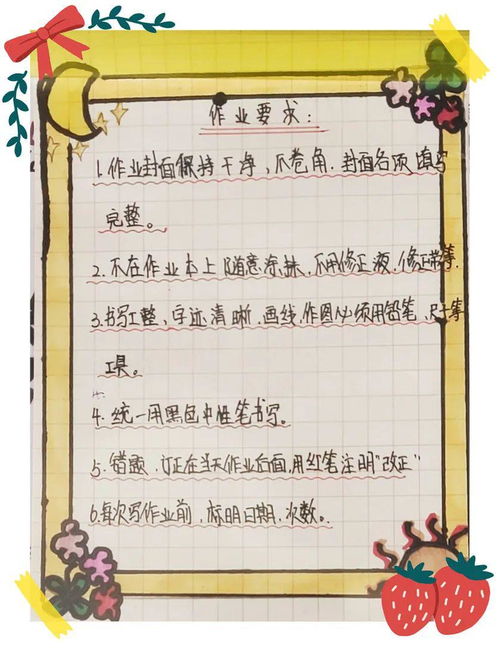 作业要求：
1.作业封面保持干净，不卷角.封面各项填写
完整。
2.不在作业本上随意涂抹，不用修正液，修正带等.
3.书写工整、字迹清晰.画线.作图必须用铅笔、尺子等
工具。
4.统一用黑色中性笔书写。
5.错题，订正在当天作业后面,用红笔注明"改正"
6.每次写作业前，标明日期，次数。